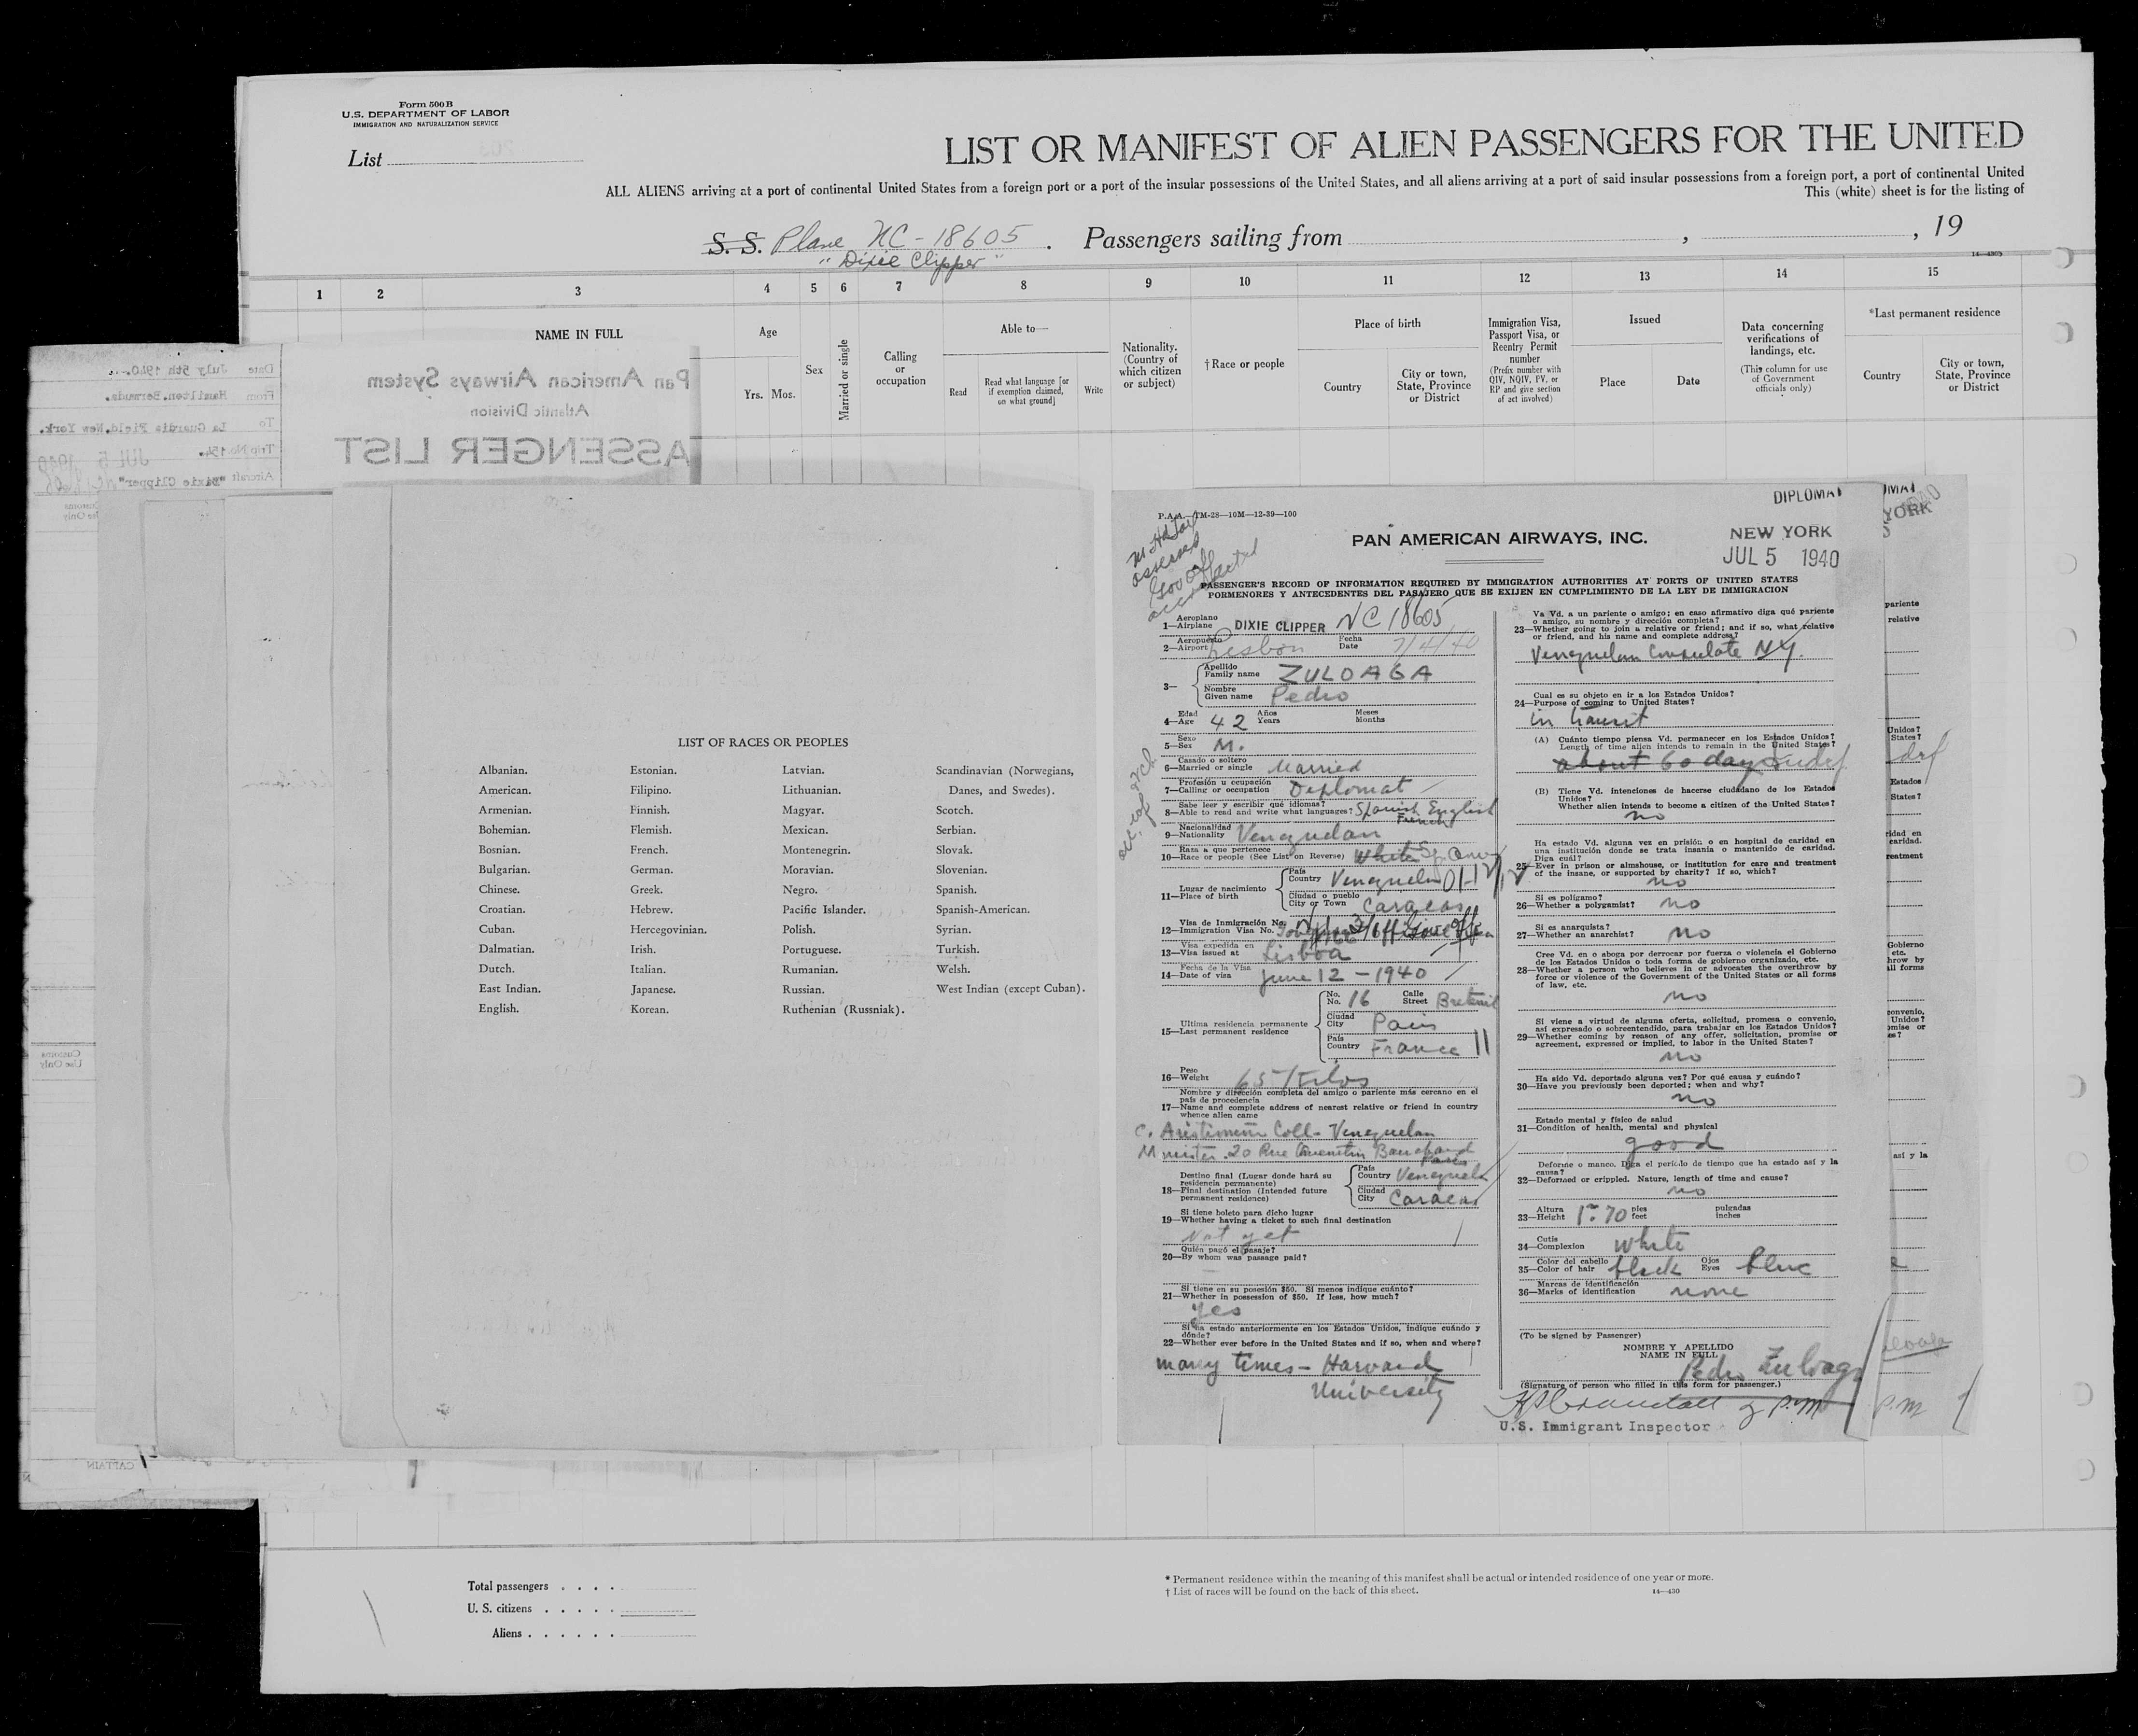 Form 500 B
U.S. DEPARTMENT OF LABOR
IMMIGRATION AND NATURALIZATION SERVICE
List
LIST OR MANIFEST OF ALIEN PASSENGERS FOR THE UNITED
ALL ALIENS arriving at a port of continental United States from a foreign port or a port of the insular possessions of the United States, and all aliens arriving at a port of said insular possessions from a foreign port, a port of continental United
This (white) sheet is for the listing of
S. S. Plane NC-18605 . Passengers sailing from , , 19
"Dixie Clipper"
14—4305
1 2 3 4 5 6 7 8 9 10 11 12 13 14 15
NAME IN FULL
Age
Yrs. Mos.
Sex
Married or single
Calling
or
occupation
Able to—
Read
Read what language [or
if exemption claimed,
on what ground]
Write
Nationality.
(Country of
which citizen
or subject)
†Race or people
Place of birth
Country
City or town,
State, Province
or District
Immigration Visa,
Passport Visa, or
Reentry Permit
number
(Prefix number with
QIV, NQIV, PV, or
RP and give section
of act involved)
Issued
Place
Date
Data concerning
verifications of
landings, etc.
(This column for use
of Government
officials only)
*Last permanent residence
Country
City or town,
State, Province
or District
Pan American Airways System
Atlantic Division
ASSENGER LIST
Date July 5th 1940.
From Hamilton.Bermuda.
To La Guardia Field.New York.
Trip No 154. JUL 5 1940
Aircraft "Dixie Clipper"
Customs
Use Only
Customs
Use Only
CAPTAIN
LIST OF RACES OR PEOPLES
Albanian.
American.
Armenian.
Bohemian.
Bosnian.
Bulgarian.
Chinese.
Croatian.
Cuban.
Dalmatian.
Dutch.
East Indian.
English.
Estonian.
Filipino.
Finnish.
Flemish.
French.
German.
Greek.
Hebrew.
Hercegovinian.
Irish.
Italian.
Japanese.
Korean.
Latvian.
Lithuanian.
Magyar.
Mexican.
Montenegrin.
Moravian.
Negro.
Pacific Islander.
Polish.
Portuguese.
Rumanian.
Russian.
Ruthenian (Russniak).
Scandinavian (Norwegians,
Danes, and Swedes).
Scotch.
Serbian.
Slovak.
Slovenian.
Spanish.
Spanish-American.
Syrian.
Turkish.
Welsh.
West Indian (except Cuban).
P.A.A.—TM-28—10M—12-39—100
DIPLOMAT
PAN AMERICAN AIRWAYS, INC.
NEW YORK
JUL 5 1940
PASSENGER'S RECORD OF INFORMATION REQUIRED BY IMMIGRATION AUTHORITIES AT PORTS OF UNITED STATES
PORMENORES Y ANTECEDENTES DEL PASAJERO QUE SE EXIJEN EN CUMPLIMIENTO DE LA LEY DE IMMIGRACION
Aeroplano
1—Airplane DIXIE CLIPPER NC 18605
Aeropuerto Fecha
2—Airport Lisbon Date 7/4/40
Apellido
3— Family name ZULOAGA
Nombre
Given name Pedro
Edad Años Meses
4—Age 42 Years Months
Sexo
5—Sex M.
Casado o soltero
6—Married or single Married
Profesión u ocupación
7—Calling or occupation Diplomat
Sabe leer y escribir qué idiomas?
8—Able to read and write what languages? Spanish English
French
Nacionalidad
9—Nationality Venezuelan
Raza a que pertenece
10—Race or people (See List on Reverse) White
Lugar de nacimiento
11—Place of birth
País
Country Venezuela
Ciudad o pueblo
City or Town Caracas
Visa de Inmigración No.
12—Immigration Visa No.
Visa expedida en
13—Visa issued at Lisboa
Fecha de la Visa
14—Date of visa June 12 - 1940
Ultima residencia permanente
15—Last permanent residence
No. Calle
No. 16 Street Breteuil
Ciudad
City Paris
País
Country France
Peso
16—Weight 65 Kilos
Nombre y dirección completa del amigo o pariente más cercano en el
país de procedencia
17—Name and complete address of nearest relative or friend in country
whence alien came
C. Aristimuño Coll - Venezuelan
Minister. 20 Rue
Paris
Destino final (Lugar donde hará su
residencia permanente)
18—Final destination (Intended future
permanent residence)
País
Country Venezuela
Ciudad
City Caracas
Si tiene boleto para dicho lugar
19—Whether having a ticket to such final destination
Not yet
Quién pagó el pasaje?
20—By whom was passage paid?
Si tiene en su posesión $50. Si menos indique cuánto?
21—Whether in possession of $50. If less, how much?
Yes
Si ha estado anteriormente en los Estados Unidos, indique cuándo y
dónde?
22—Whether ever before in the United States and if so, when and where?
many times - Harvard
University
Va Vd. a un pariente o amigo; en caso afirmativo diga qué pariente
o amigo, su nombre y dirección completa?
23—Whether going to join a relative or friend; and if so, what relative
or friend, and his name and complete address?
Venezuelan Consulate NY.
Cual es su objeto en ir a los Estados Unidos?
24—Purpose of coming to United States?
in transit
(A) Cuánto tiempo piensa Vd. permanecer en los Estados Unidos?
Length of time alien intends to remain in the United States?
about 60 days indef
(B) Tiene Vd. intenciones de hacerse ciudadano de los Estados
Unidos?
Whether alien intends to become a citizen of the United States?
no
Ha estado Vd. alguna vez en prisión o en hospital de caridad en
una institución donde se trata insania o mantenido de caridad.
Diga cuál?
25—Ever in prison or almahouse, or institution for care and treatment
of the insane, or supported by charity? If so, which?
no
Si es polígamo?
26—Whether a polygamist? no
Si es anarquista?
27—Whether an anarchist? no
Cree Vd. en o aboga por derrocar por fuerza o violencia el Gobierno
de los Estados Unidos o toda forma de gobierno organizado, etc.
28—Whether a person who believes in or advocates the overthrow by
force or violence of the Government of the United States or all forms
of law, etc.
no
Si viene a virtud de alguna oferta, solicitud, promesa o convenio,
así expresado o sobreentendido, para trabajar en los Estados Unidos?
29—Whether coming by reason of any offer, solicitation, promise or
agreement, expressed or implied, to labor in the United States?
no
Ha sido Vd. deportado alguna vez? Por qué causa y cuándo?
30—Have you previously been deported; when and why?
no
Estado mental y físico de salud
31—Condition of health, mental and physical
good
Deforme o manco. Diga el período de tiempo que ha estado así y la
causa?
32—Deformed or crippled. Nature, length of time and cause?
no
Altura pies pulgadas
33—Height 1m. 70 feet inches
Cutis
34—Complexion white
Color del cabello Ojos
35—Color of hair black Eyes blue
Marcas de identificación
36—Marks of identification none
(To be signed by Passenger)
NOMBRE Y APELLIDO
NAME IN FULL
Pedro Zuloaga
(Signature of person who filled in this form for passenger.)
U.S. Immigrant Inspector
Total passengers
U. S. citizens
Aliens
* Permanent residence within the meaning of this manifest shall be actual or intended residence of one year or more.
† List of races will be found on the back of this sheet.
14—430